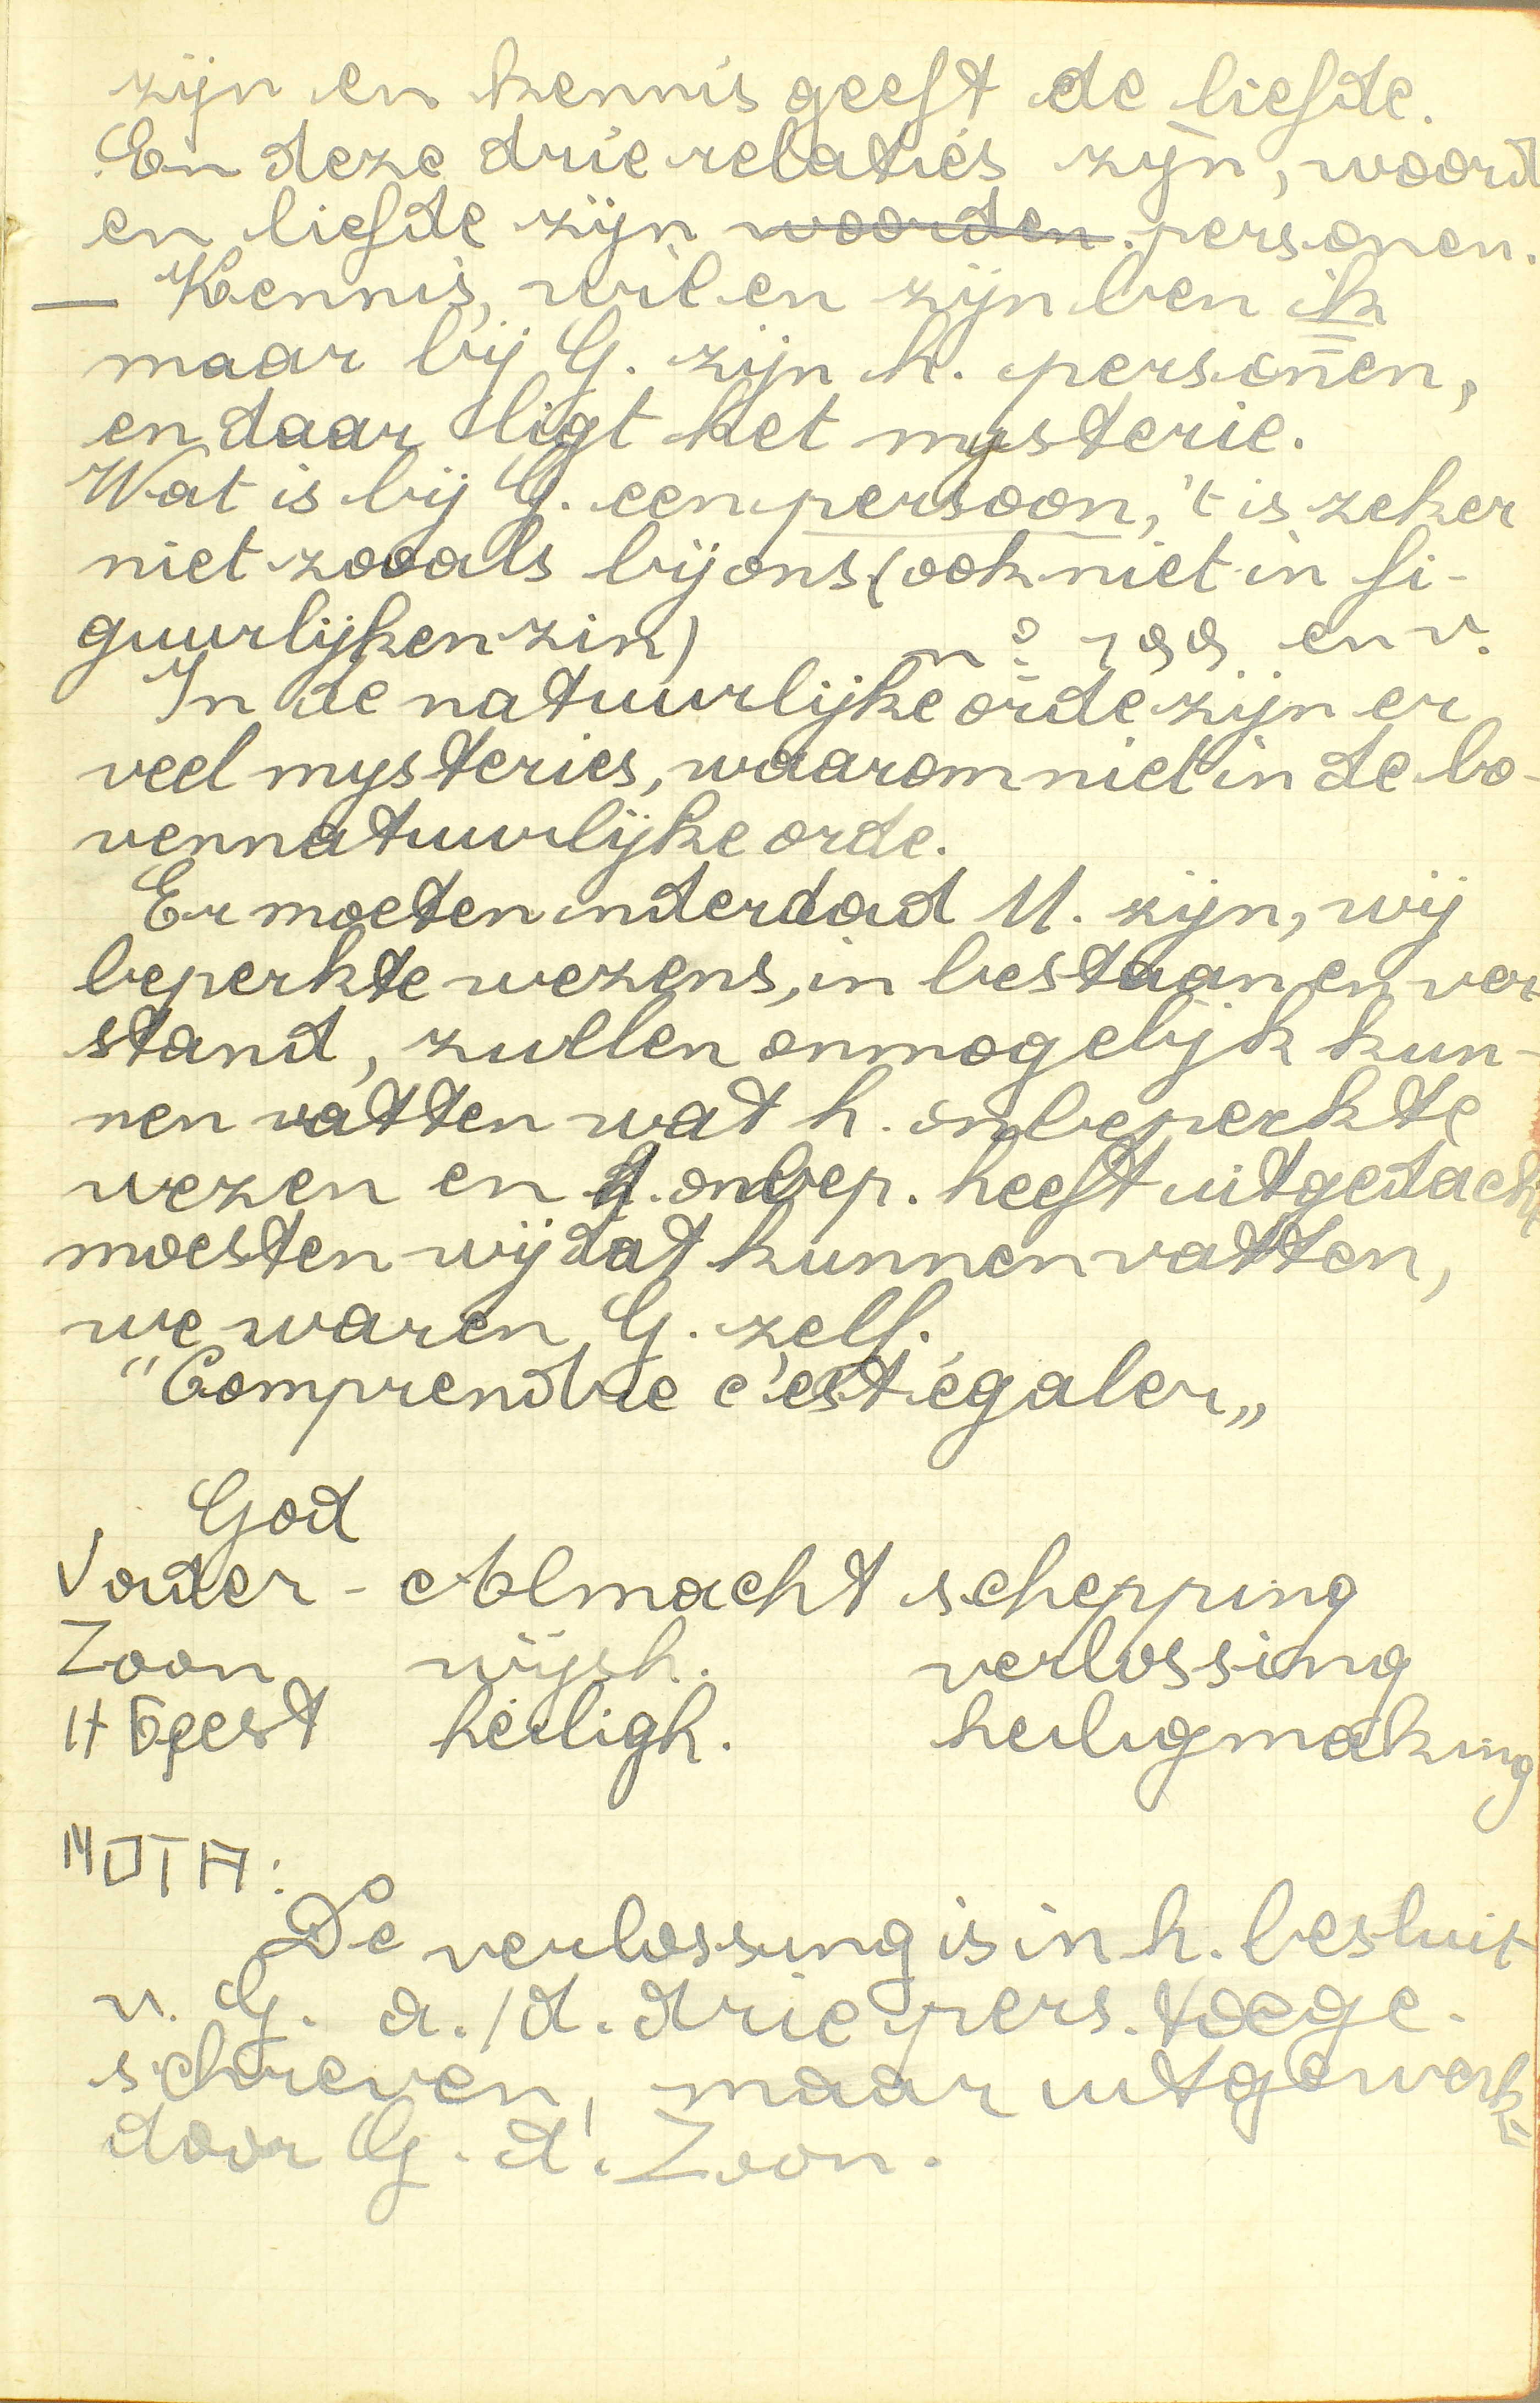 zijn en kennis geeft de liefde.
En deze drie relaties zijn, woord
en liefde zijn woorden. personen.
— Kennis, wil en zijn ben ik
maar bij G. zijn h. personen,
en daar ligt het mysterie.
Wat is bij G. een persoon, 't is zeker
niet zooals bij ons (ook niet in fi-
guurlijken zin) nº en v.
In de natuurlijke orde zijn er
veel mysteries, waarom niet in de bo-
vennatuurlijke orde.
Er moeten inderdaad M. zijn, wij
beperkte wezens, in bestaan en ver
stand, zullen onmogelijk kun-
nen vatten wat h. onbeperkte
wezen en d. onbep. heeft uitgedacht
moesten wij dat kunnen vatten,
we waren G. zelf.
"Comprendre c'est égaler„
God
Vader - Almacht schepping
Zoon wijsh. verlossing
H Geest heiligh. heiligmaking
NOTA:
De verlossing is in h. besluit
v. G. a./d. drie pers. toege.
schreven, maar uitgewerkt
door G. d. Zoon.